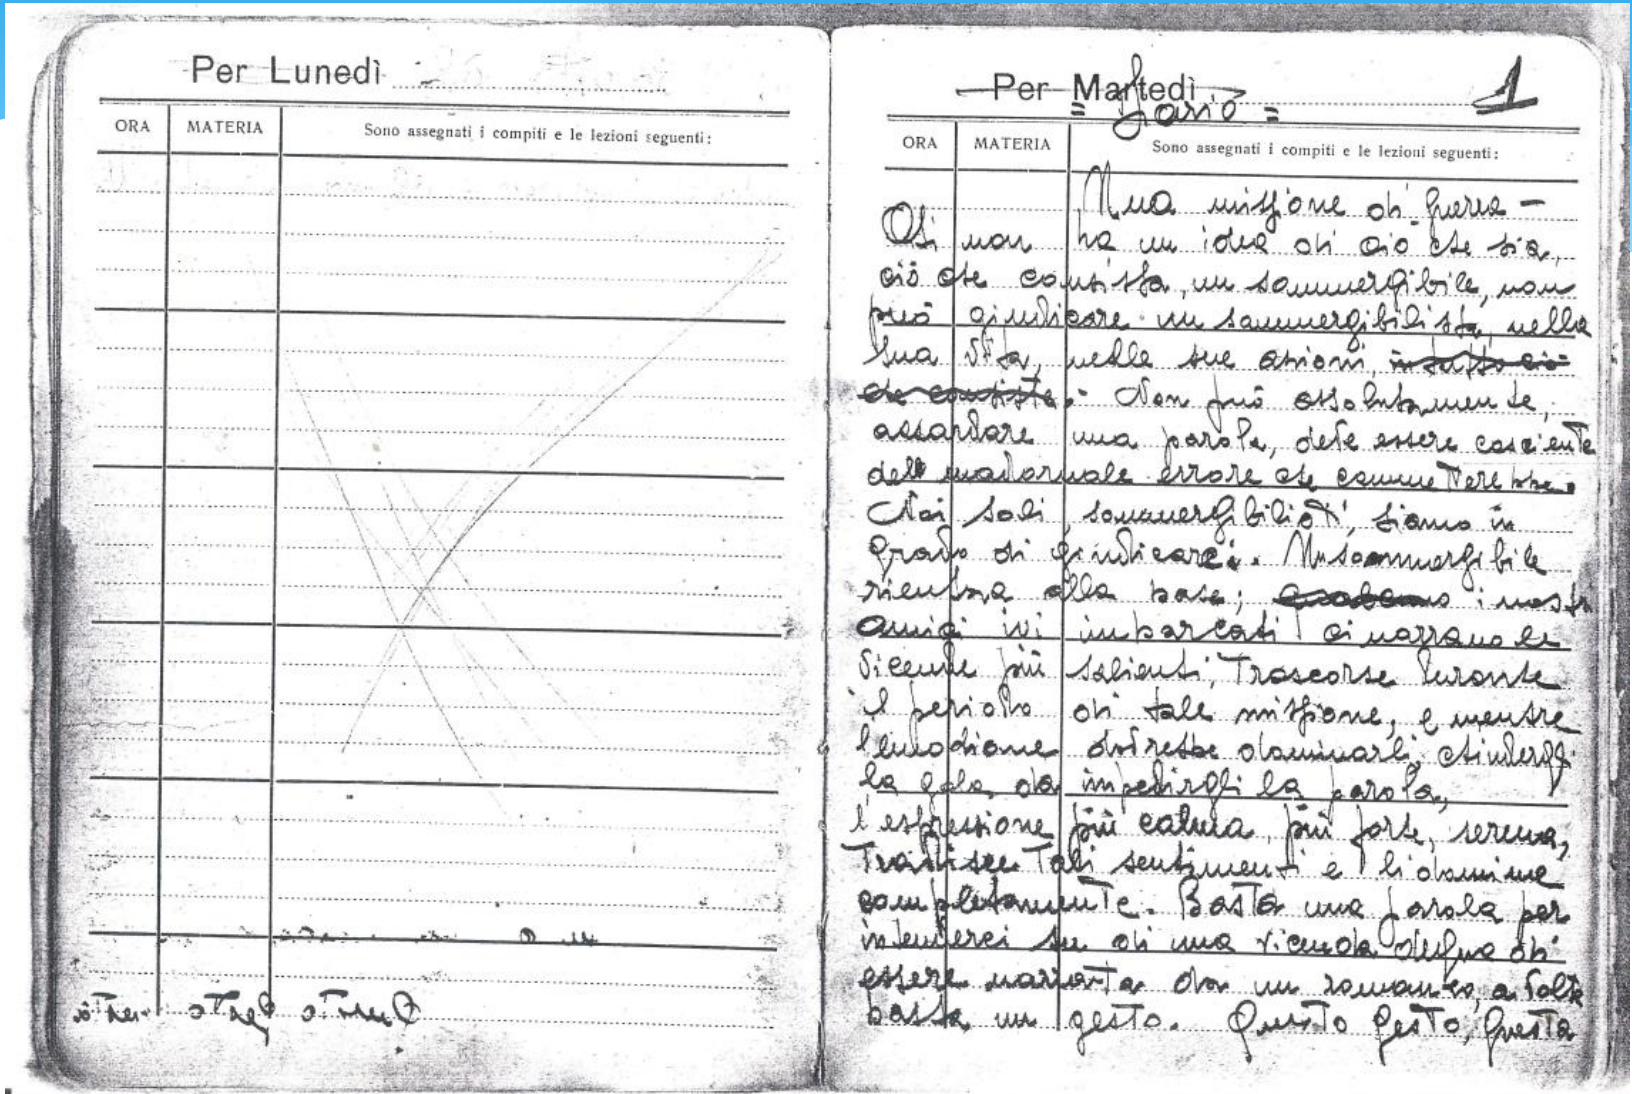 Per Lunedì
ORA MATERIA Sono assegnati i compiti e le lezioni seguenti:
Per Martedì 1
= =
ORA MATERIA Sono assegnati i compiti e le lezioni seguenti:
Una missione di guerra —
Chi non ha un idea di ciò che sia,
ciò che consista, un sommergibile, non
può giudicare un sommergibilista, nella
sua vita, nelle sue azioni, in tutto ciò
che consiste. Non può assolutamente,
azzardare una parola, deve essere cosciente
dell madornale errore che commetterebbe.
Noi soli, sommergibilisti, siamo in
grado di giudicarci. Un sommergibile
rientra alla base; i nostri
amici ivi imbarcati ci narrano le
vicende più salienti, trascorse durante
il periodo di tale missione, e mentre
l'emozione dovrebbe dominarli, chiudergli
la gola, da impedirgli la parola,
l'espressione più calma, più forte, serena,
tradisce tali sentimenti e li domina
completamente. Basta una parola per
intenderci su di una vicenda degna di
essere narrata da un romanzo, a volte
basta un gesto. Questo gesto, questa